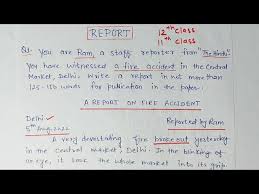 REPORT
12th class
11th class
Q1. You are Ram, a staff reporter from "The Hindu"
You have witnessed a fire accident in the Central
Market, Delhi. Write a report in not more than
125-150 words for publication in the paper.
A REPORT ON FIRE ACCIDENT
Delhi
5th Aug, 2022
Reported by Ram
A very devastating fire broke out yesterday
in the central market, Delhi. In the blinking of
an eye, it took the whole market into its grip.